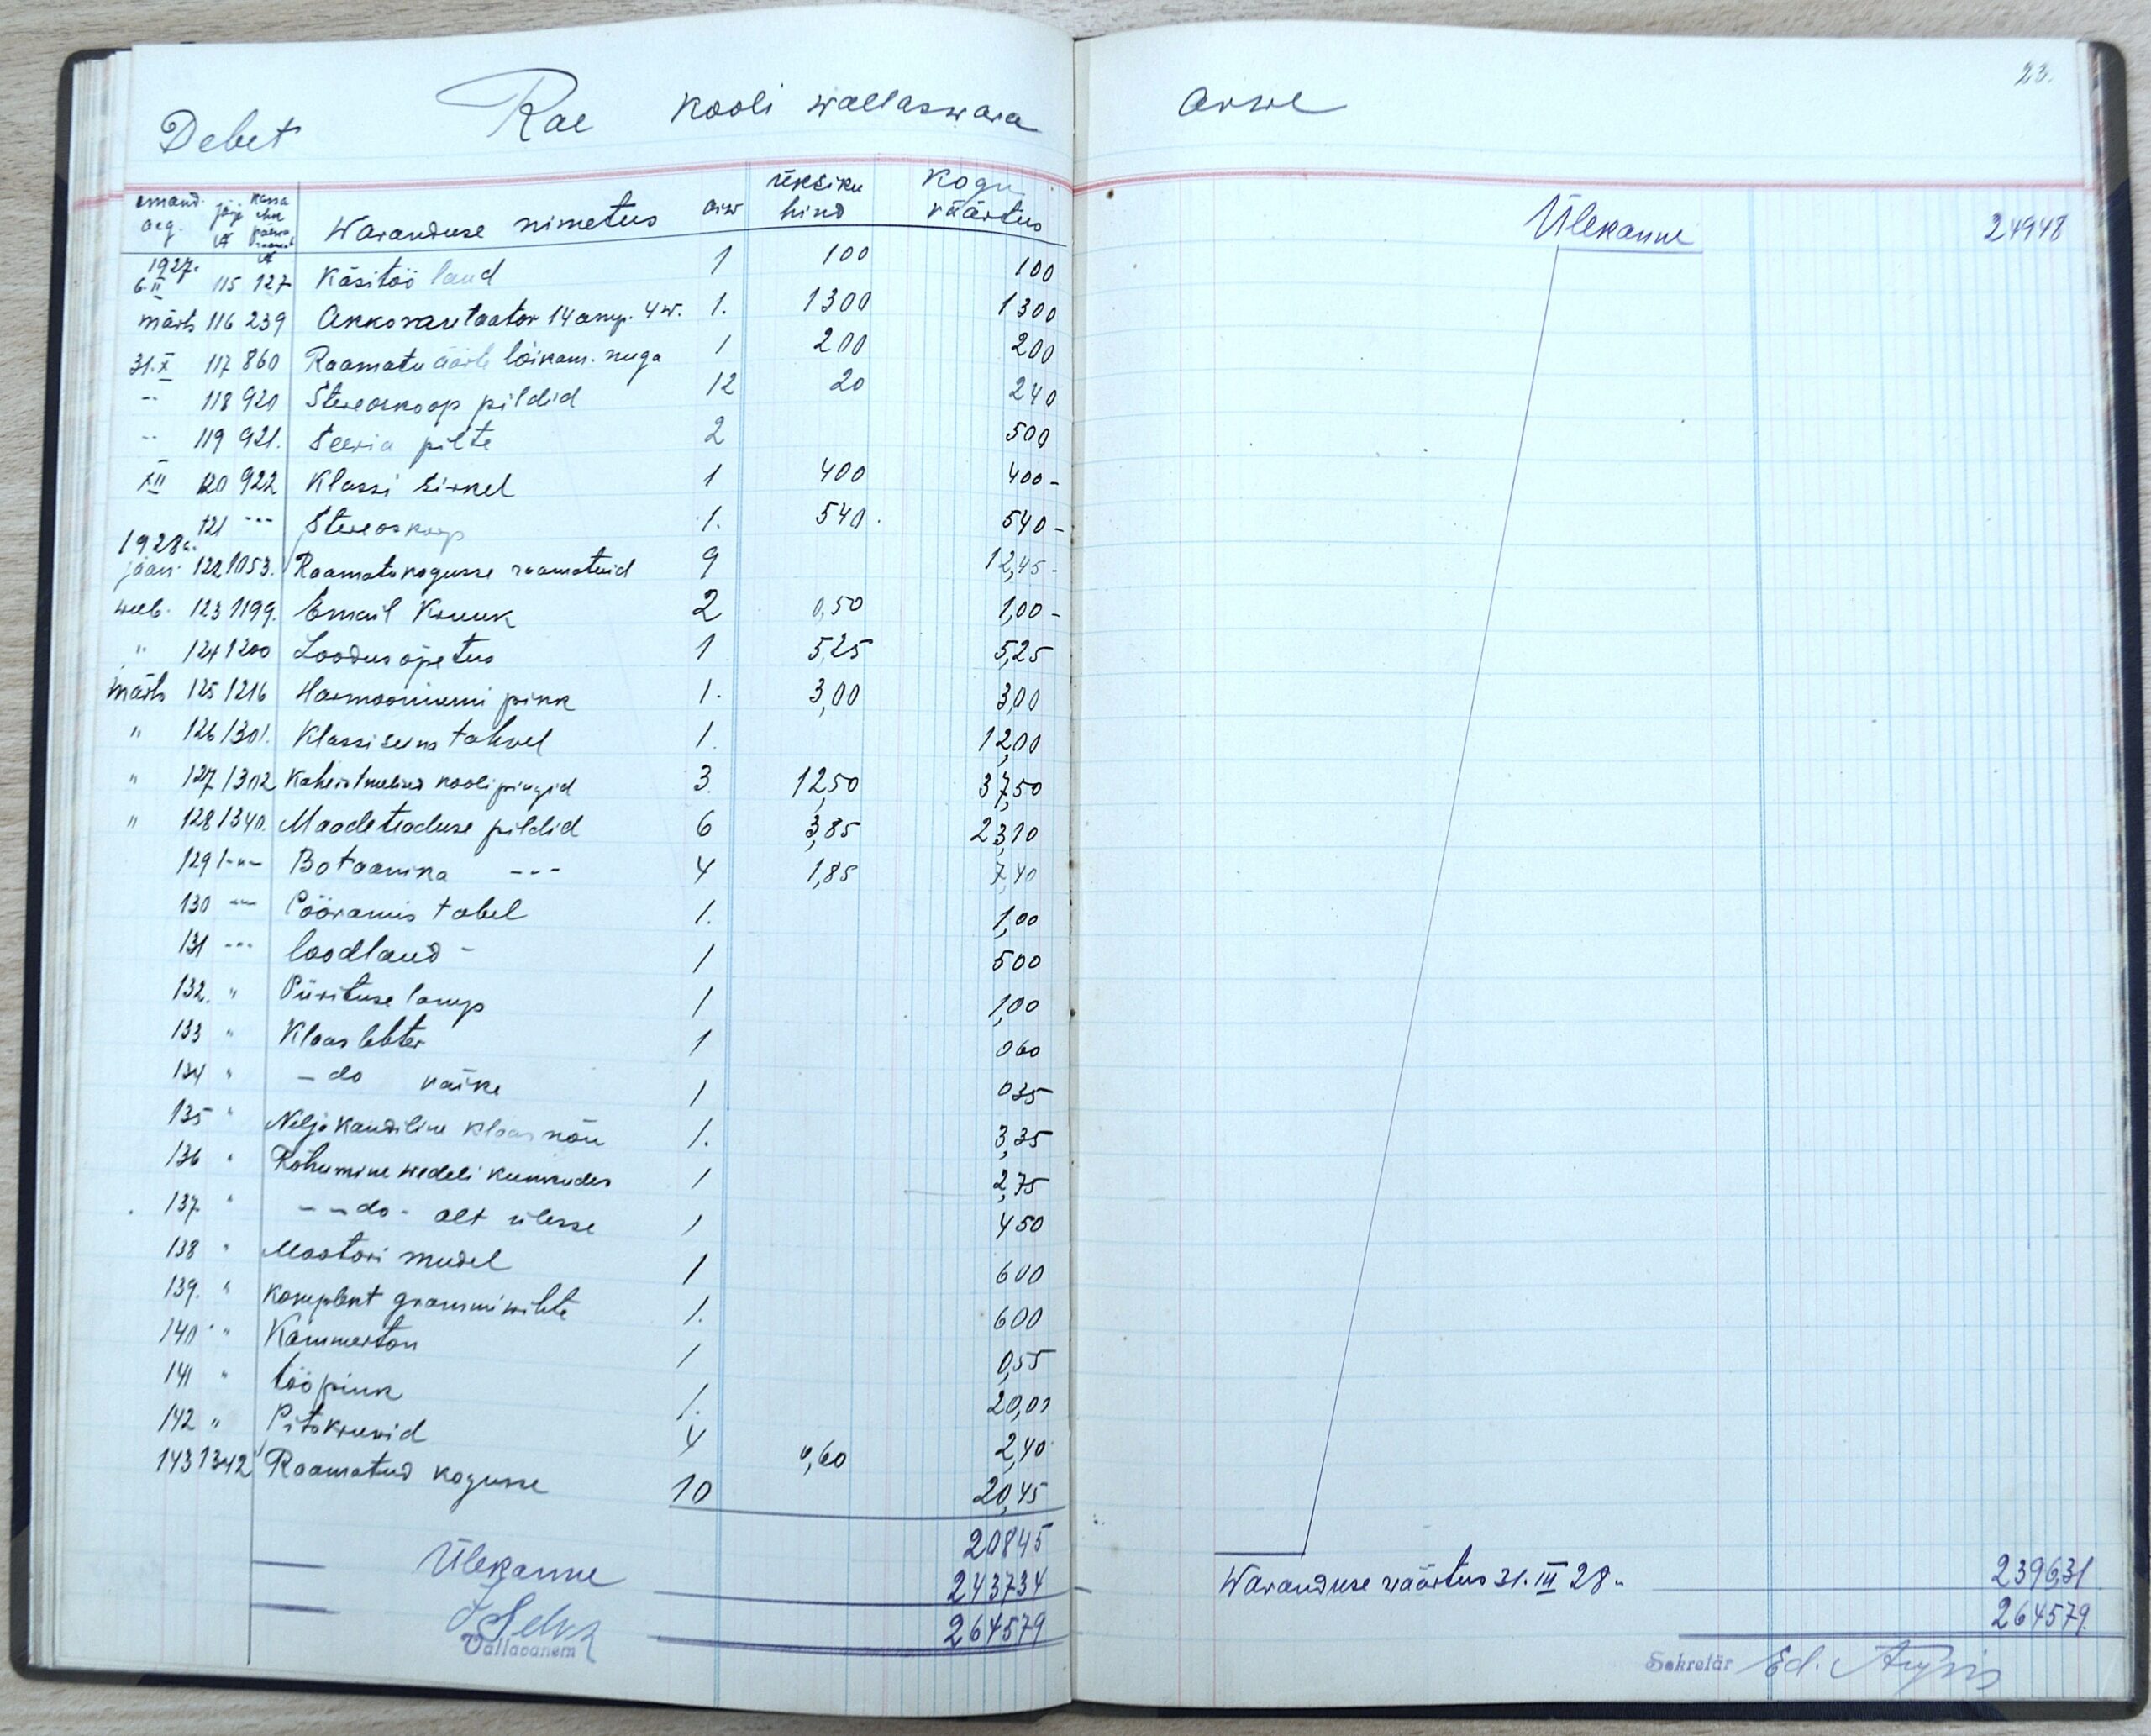 23.
Debet Rae kooli wallaswara arwe
omand. aeg. järje № kassa ehk päewa raamat № Waranduse nimetus arw üksiku hind kogu väärtus
1927.
6.II 115 127 Käsitöö laud 1 100 100
märts 116 239 Akkomulaator 14 amp. 4 w. 1. 1300 1300
31.X 117 860 Raamatu äärte lõikam. nuga 1 200 200
-"- 118 920 Stereoskoop pildid 12 20 240
-"- 119 921. Seeria pilte 2 500
XII 120 922 Klassi sirkel 1 400 400-
121 -"- Stereoskoop 1. 540. 540-
1928a.
jaan. 122 1053. Raamatukogusse raamatuid 9 12,45-
weeb. 123 1199. Email Kruuk 2 0,50 1,00-
" 124 1200 Loodusõpetus 1 5,25 5,25
märts 125 1216 Harmooniumi pink 1. 3,00 3,00
" 126 1301. Klassi seina tahvel 1. 12,00
" 127 1302 Kaheistmelised koolipingid 3. 12,50 37,50
" 128 1340. Maadeteaduse pildid 6 3,85 23,10
129 -"- Botaanika -"- 4 1,85 7,40
130 -"- Pööramis tabel 1. 1,00
131 -"- loodlaud - 1 500
132. " Piirituse lamp 1 1,00
133 " Klaas lehter 1 060
134 " - do väike 1 035
135 " Neljakandiline klaas nõu 1. 3,35
136 " Rõhumine wedeli kummudes 1 2,75
137. " - - do - alt ülesse 1 450
138 " Mootori mudel 1 600
139. " Komplekt grammiwihte 1. 600
140. " Kammerton 1 0,55
141 " tööpink 1. 20,00
142 " Pitskruvid 4 0,60 2,40
143 1342 Raamatud kogusse 10 20,45
20845
Ülekanne 243734
264579
Vallavanem
Ülekanne 24948
Waranduse väärtus 31. III 28. 2396,31
264579.
Sekretär Ed.